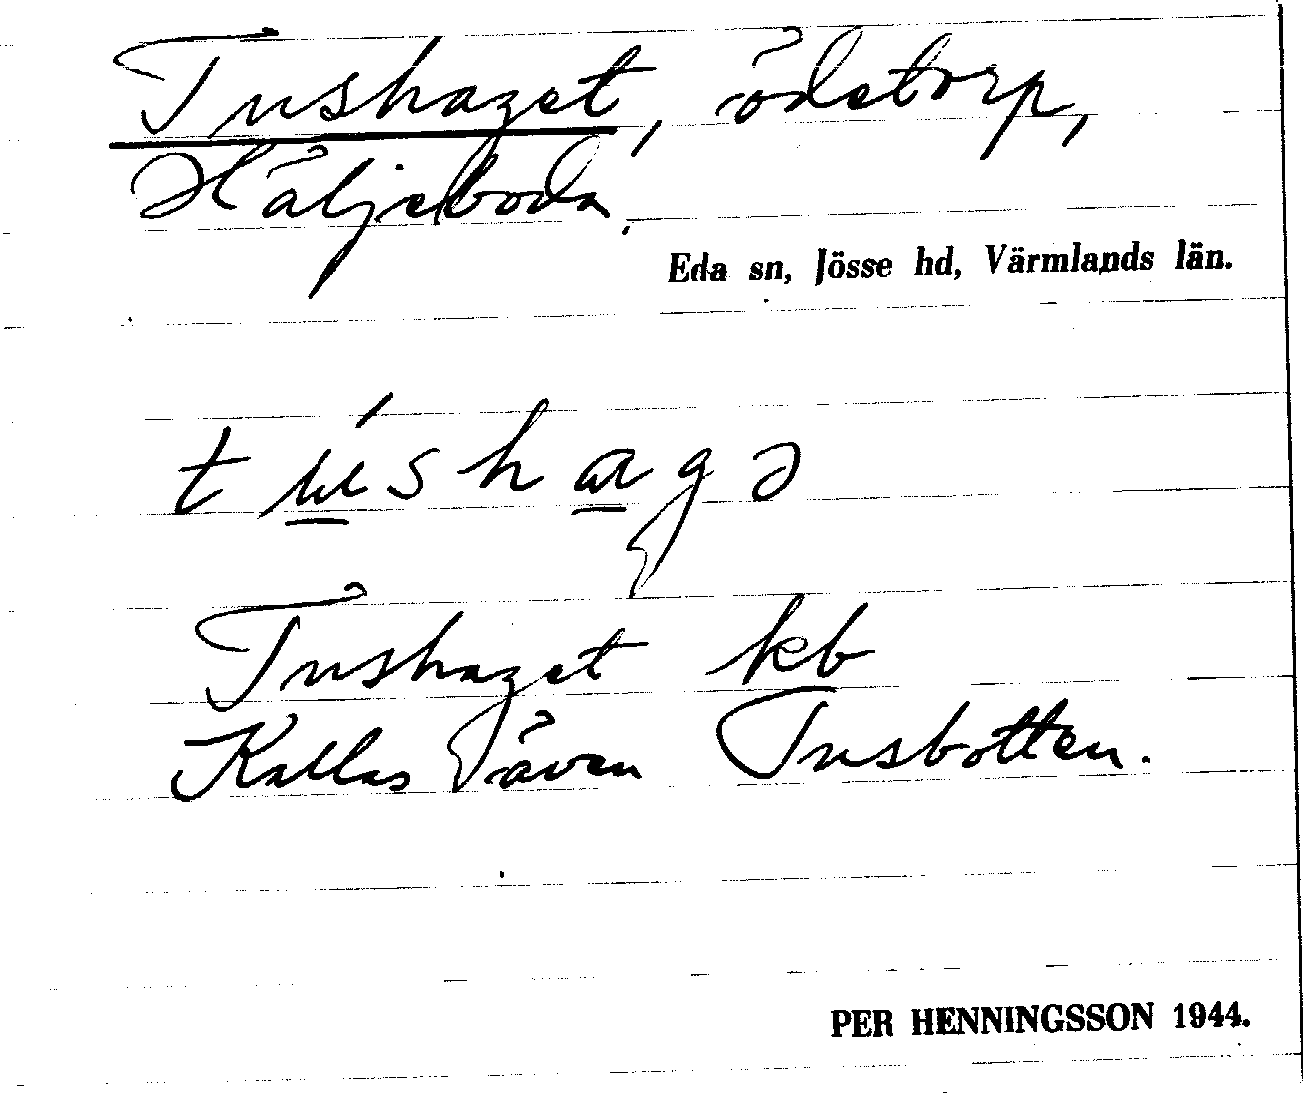 Tushaget, ödetorp,
Häljeboda.
Eda sn, Jösse hd, Värmlands län.
túshagə
Tushaget kb
Kallas även Tusbotten.
PER HENNINGSSON 1944.